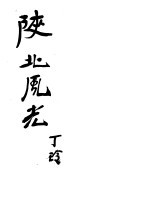 陕北風光
丁玲